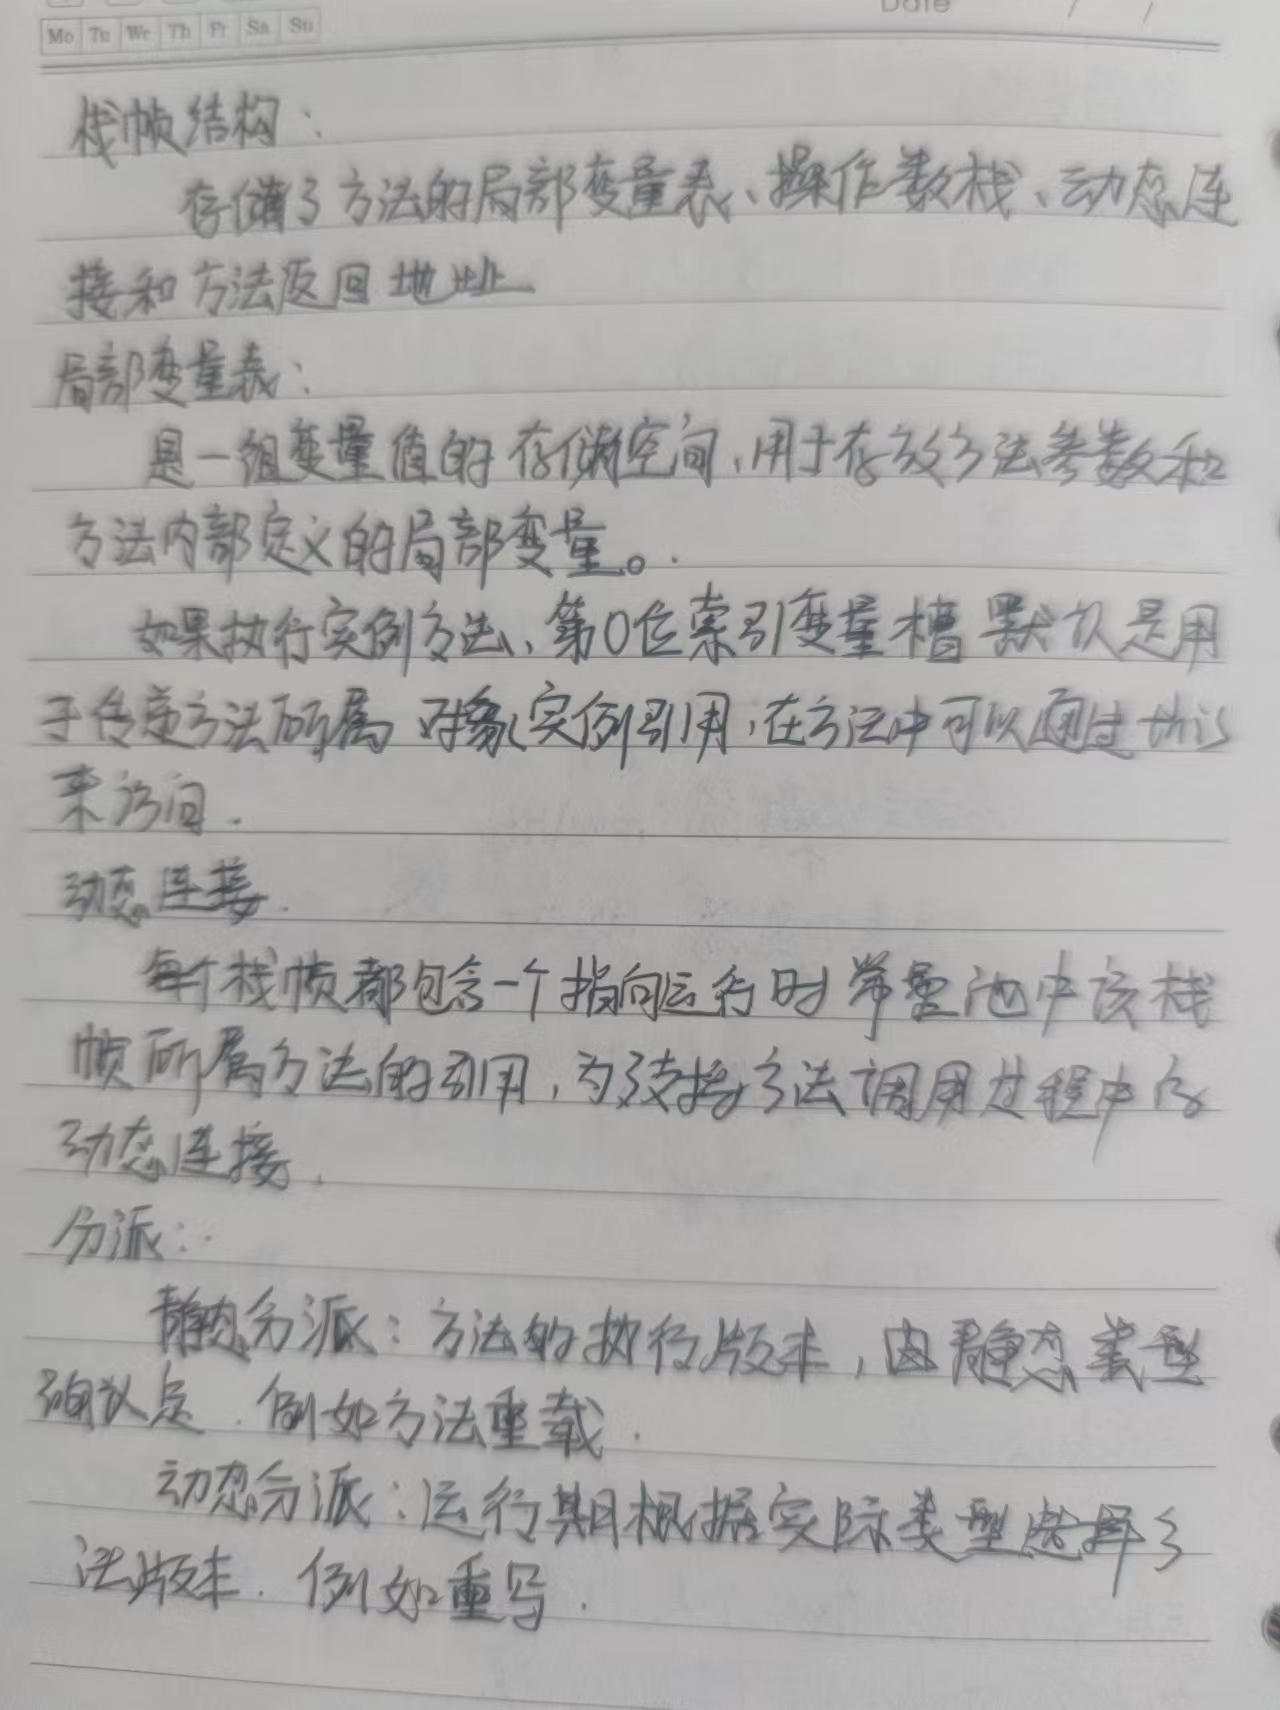 Date / /
Mo Tu We Th Fr Sa Su
栈帧结构：
存储了方法的局部变量表、操作数栈、动态连
接和方法返回地址
局部变量表：
是一组变量值的存储空间，用于存放方法参数和
方法内部定义的局部变量。
如果执行实例方法，第0位索引变量槽默认是用
于传递方法所属对象实例引用，在方法中可以通过this
来访问.
动态连接.
每个栈帧都包含一个指向运行时常量池中该栈
帧所属方法的引用，为了支持方法调用过程中的
动态连接.
分派：
静态分派：方法的执行版本，由静态类型
确认定.例如方法重载.
动态分派：运行期根据实际类型选择方
法版本.例如重写.